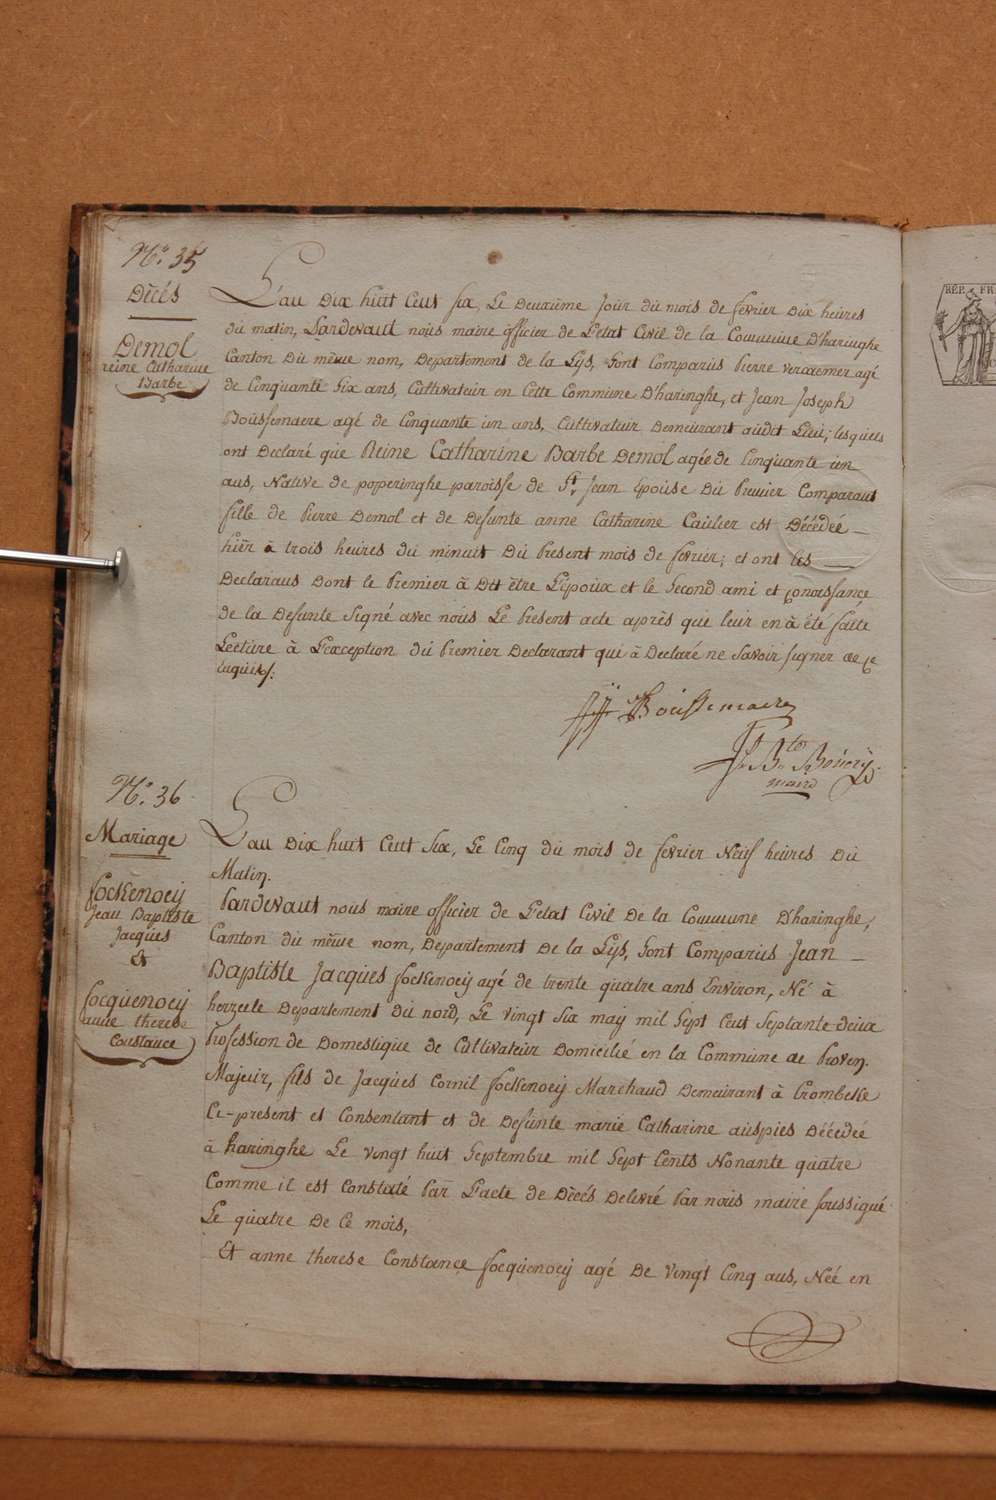 N.° 35
Décés
Demol
reine Catharine
Barbe
L'an Dix huit Cent six, Le Deuxième jour du mois de fevrier Dix heures
du matin, Pardevant nous maire officier de L'etat Civil de la Commune D'haringhe
Canton Du même nom, Departement de la Lys, sont Comparus Pierre vercaemer agé
de Cinquante six ans, Cultivateur en Cette Commune D'haringhe, et Jean Joseph
Boussemaere agé de Cinquante un ans, Cultivateur Demeurant audit Lieu; lesquels
ont Declaré que Reine Catharine Barbe Demol agée de Cinquante un
ans, Native de poperinghe paroisse de St. Jean Epouse Du Premier Comparant
fille de Pierre Demol et de Defunte anne Catharine Caulier est Décédeé
hiër à trois heures du minuit Du Present mois de fevrier; et ont les
Declarans Dont le Premier à Dit être L'époux et le Second ami et conoissance
de la Defunte signé avec nous Le Present acte après que leur en à été faite
Lecture à L'exception du Premier Declarant qui à Declaré ne savoir signer de ce
enquis/.
JJ Boussemaere
J. Bte Bouery
maire
N.° 36
Mariage
fockenoey
Jean Baptiste
Jacques
Et
focquenoey
anne therese
Constance
L'an Dix huit Cent Six, Le Cinq du mois de fevrier Neuf heures Du
Matin.
Pardevant nous maire officier de L'etat Civil De la Commune D'haringhe,
Canton du même nom, Departement De la Lys, sont Comparus Jean
Baptiste Jacques fockenoey agé de trente quatre ans Environ, Né à
herzeele Departement Du nord, Le vingt Six may mil Sept Cent Septante deux
Profession de Domestique de Cultivateur Domicilié en la Commune de Proven.
Majeur, fils de Jacques Cornil fockenoey Marchand Demeurant à Crombeke
Ce-present et Consentant et de Defunte marie Catharine auspies Décedeé
à haringhe Le vingt huit Septembre mil Sept Cents Nonante quatre
Comme il est Constaté Par L'acte de Décés Delivré Par nous maire soussigné
Le quatre De Ce mois,
Et anne therese Constance focquenoey agé De vingt Cinq ans, Neé en
RÉP. FR